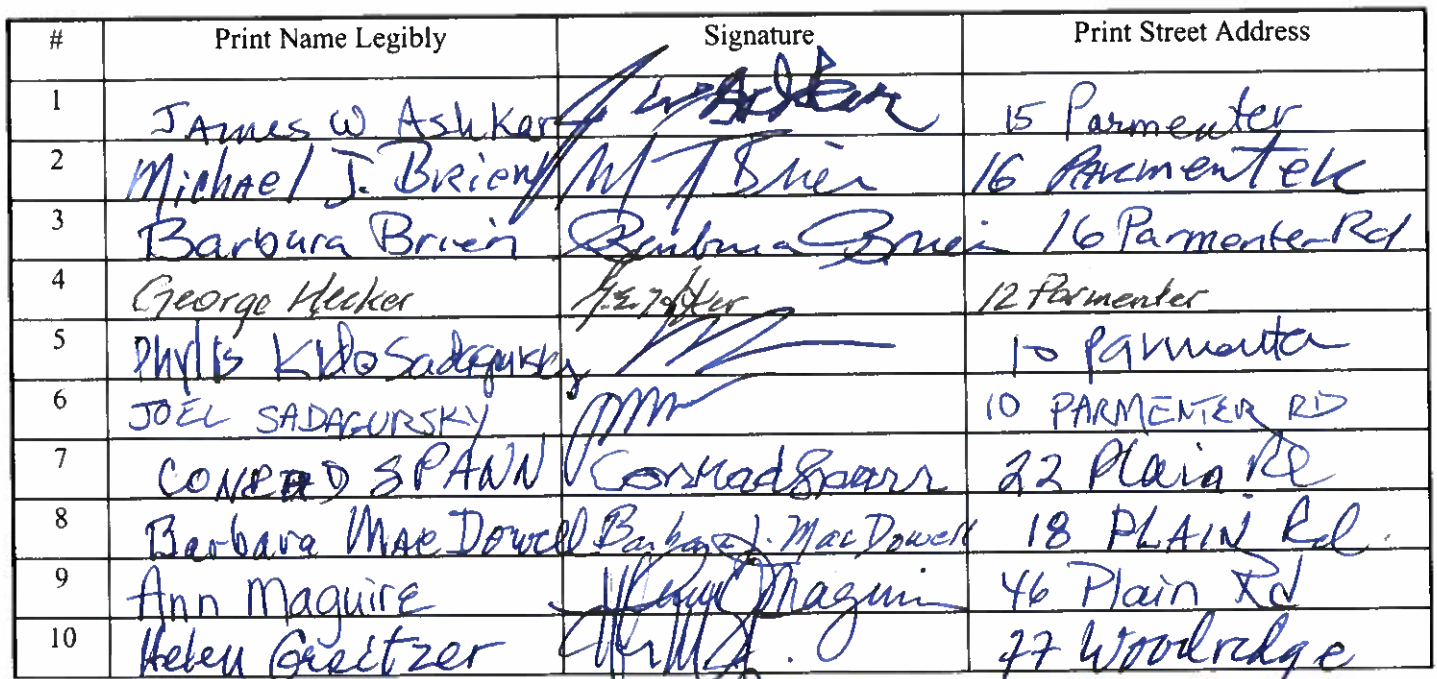 # Print Name Legibly Signature Print Street Address
1 James W. Ashkar J W Ashkar 15 Parmenter
2 Michael J. Brien M J Brien 16 Parmenter
3 Barbara Brien Barbara Brien 16 Parmenter Rd
4 George Hecker 12 Parmenter
5 Phyllis Sadagursky 10 Parmenter
6 JOEL SADAGURSKY 10 PARMENTER RD
7 CONRAD SPANN Conrad Spann 22 Plain Rd
8 Barbara MacDowell Barbara J. MacDowell 18 PLAIN Rd.
9 Ann Maguire Maguire 46 Plain Rd
10 Helen Greitzer 77 Woodridge